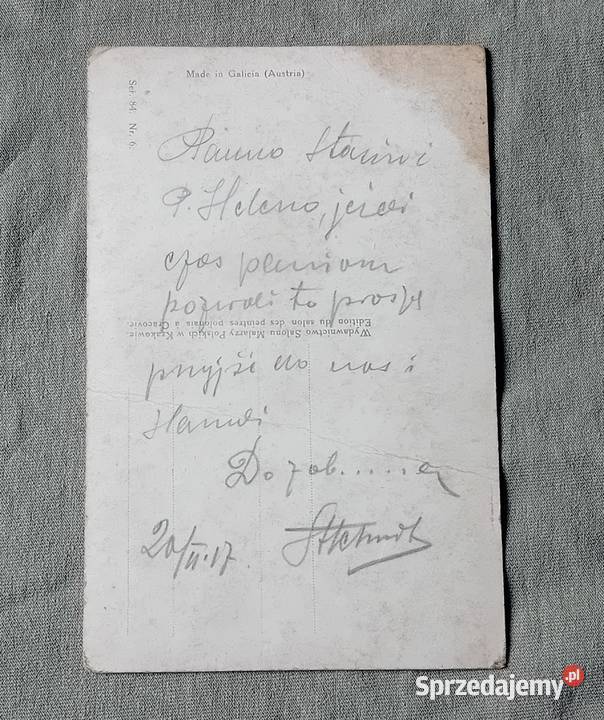 Made in Galicia (Austria)
Ser. 84. Nr. 6.
Panno
P. Heleno, jeżeli
czas paniom
pozwoli to proszę
Wydawnictwo Salonu Malarzy Polskich w Krakowie.
Edition du salon des peintres polonais à Cracovie.
przyjść do nas i
Do zob......a
20/II.17.
Sprzedajemy.pl